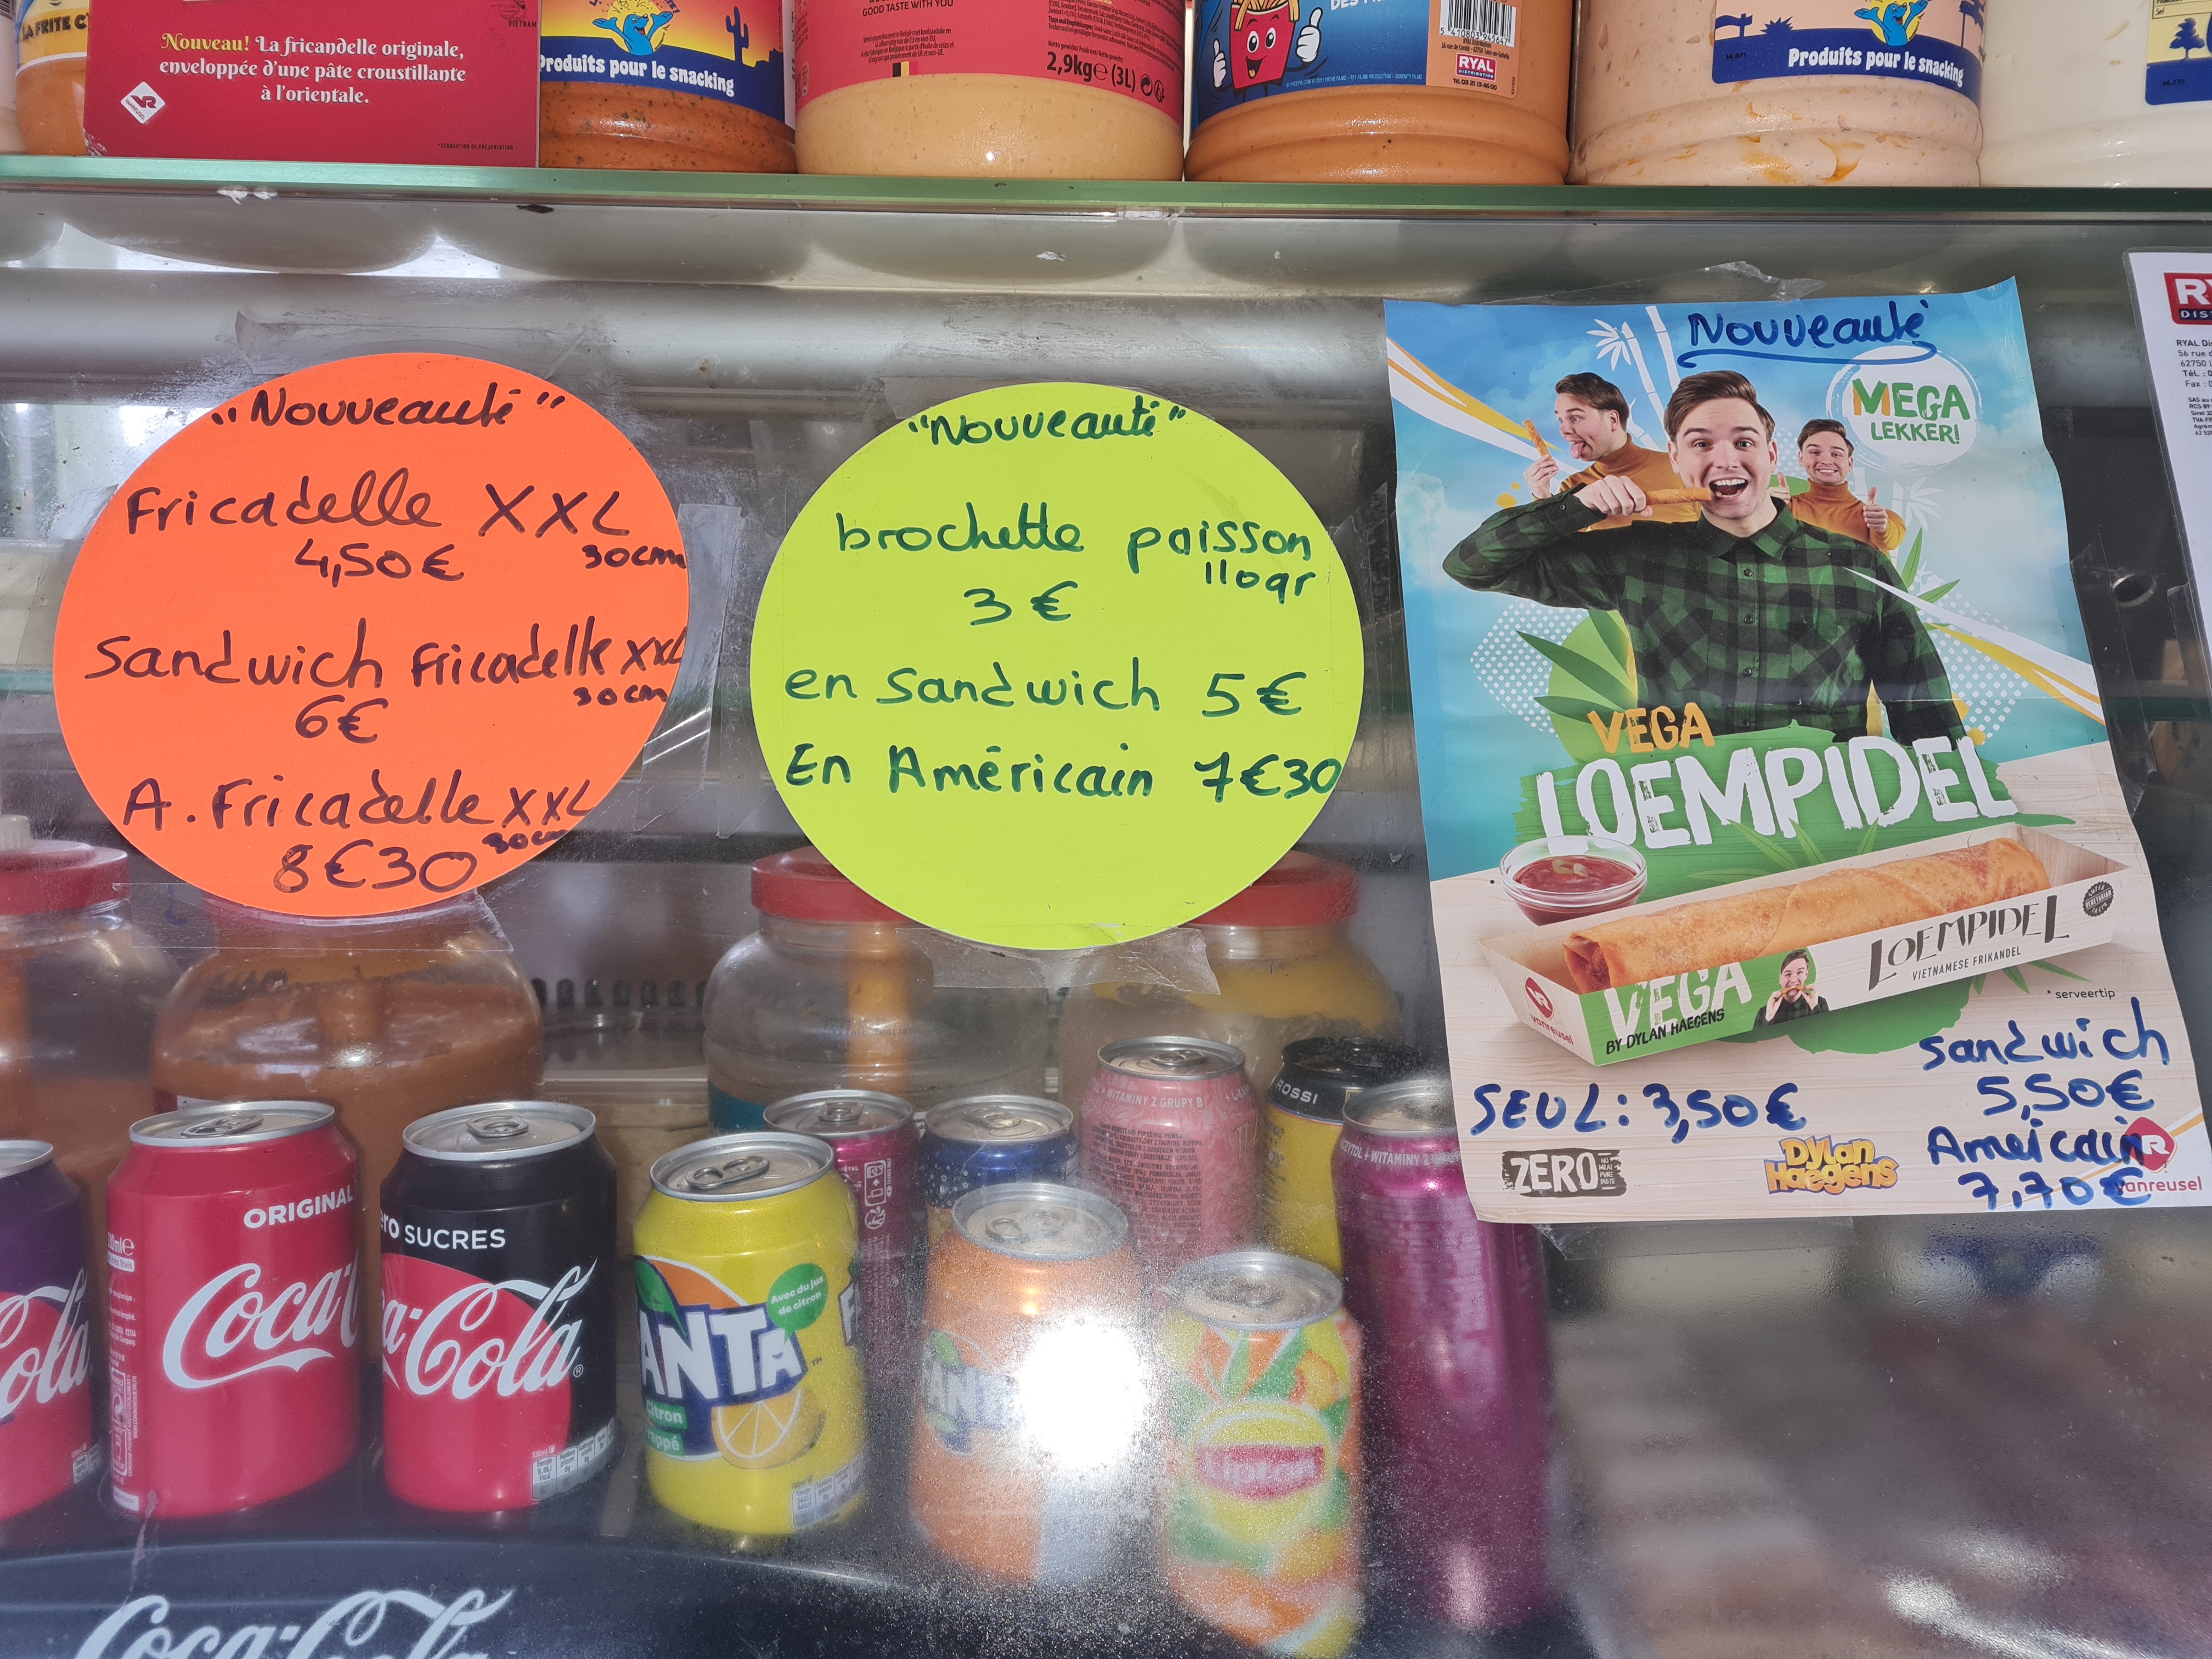 LA FRITE
VIETNAM
Nouveau! La fricandelle originale,
enveloppée d'une pâte croustillante
à l'orientale.
*SUGGESTION DE PRÉSENTATION
Produits pour le snacking
GOOD TASTE WITH YOU
2,9kg e (3L)
RYAL
DISTRIBUTION
Produits pour le snacking
"Nouveauté"
Fricadelle XXL
30cm
4,50€
Sandwich Fricadelle XXL
30cm
6€
A. Fricadelle XXL
30cm
8€30
"Nouveauté"
brochette poisson
110gr
3€
en sandwich 5€
En Américain 7€30
Nouveauté
MEGA
LEKKER!
VEGA
LOEMPIDEL
LOEMPIDEL
VIETNAMESE FRIKANDEL
VEGA
BY DYLAN HAEGENS
vanreusel
* serveertip
sandwich
5,50€
SEUL: 3,50€
Ameicain
7,70€
ZERO
Dylan
Haegens
vanreusel
RYAL Di
56 rue d
62750
Tél. : 0
Fax : 0
+ WITAMINY Z GRUPY B
ROSSI
+ WITAMINY Z
ORIGINAL
Coca-C
ro SUCRES
a-Cola
Cola
ANTA
Avec du jus
de citron
Citron
rappé
ANT
Lipton
Coca-Cola